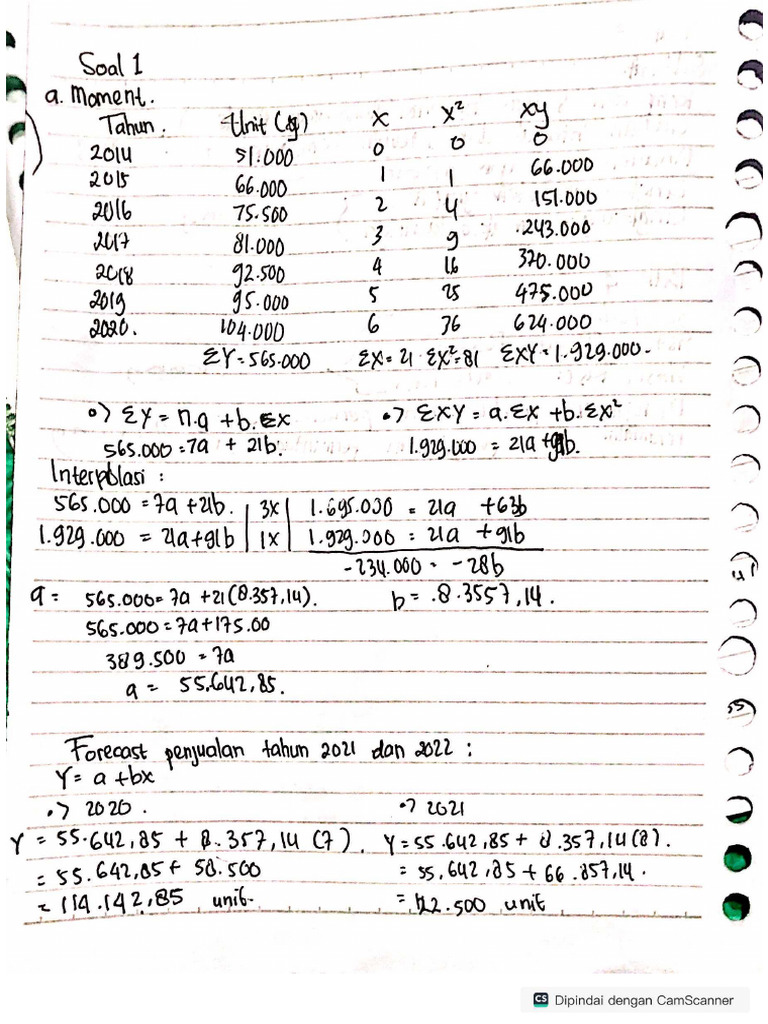 Soal 1
a. Moment.
Tahun. Unit (kg) X X² XY
2014 51.000 0 0 0
2015 66.000 1 1 66.000
2016 75.500 2 4 151.000
2017 81.000 3 9 243.000
2018 92.500 4 16 370.000
2019 95.000 5 25 475.000
2020. 104.000 6 36 624.000
ΣY = 565.000 ΣX = 21 ΣX² = 81 ΣXY = 1.929.000-
•) ΣY = n.a + b.ΣX •) ΣXY = a.ΣX + b.ΣX²
565.000 = 7a + 21b. 1.929.000 = 21a + 91b.
Interpolasi :
565.000 = 7a + 21b. | 3x | 1.695.000 = 21a + 63b
1.929.000 = 21a + 91b | 1x | 1.929.000 = 21a + 91b
-234.000 = -28b
a = 565.000 = 7a + 21 (8.357,14). b = .8.3557,14.
565.000 = 7a + 175.00
389.500 = 7a
a = 55.642,85.
Forecast penjualan tahun 2021 dan 2022 :
Y = a + bx
•) 2020. •) 2021
Y = 55.642,85 + 8.357,14 (7). Y = 55.642,85 + 8.357,14 (8).
= 55.642,85 + 58.500 = 55.642,85 + 66.857,14.
= 114.142,85 unit- = 122.500 unit
CS Dipindai dengan CamScanner